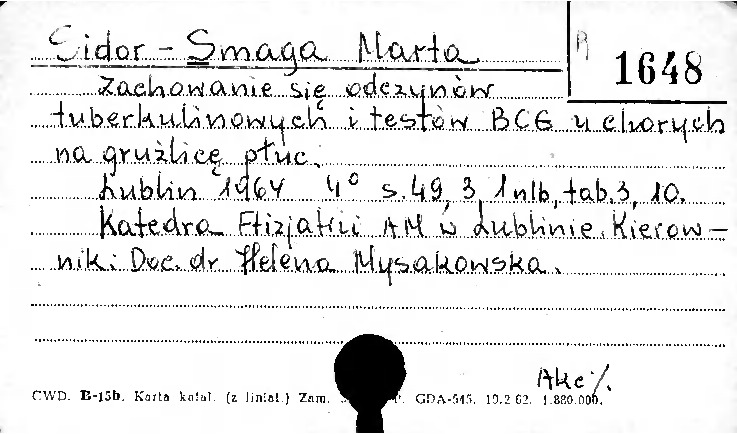 Sidor - Smaga Marta
B 1648
Zachowanie się odczynów
tuberkulinowych i testów BCG u chorych
na gruźlicę płuc.
Lublin 1964 4° s. 49, 3, 1 nlb, tab. 3, 10.
Katedra Ftizjatrii AM w Lublinie. Kierow-
nik: Doc. dr Helena Mysakowska.
Akc/.
CWD. B-15b. Karta katal. (z liniat.) Zam. GDA-545. 19.2 62. 1.880.000.